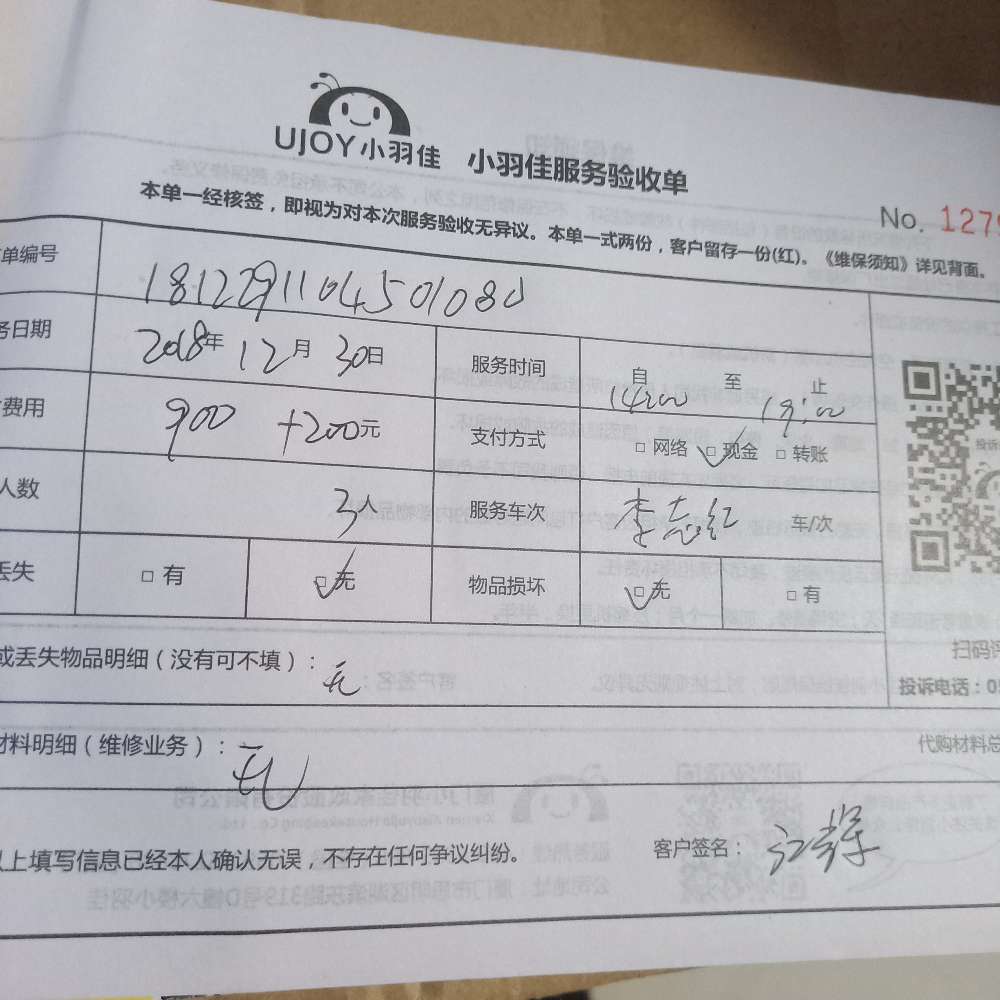 UJOY小羽佳 小羽佳服务验收单
No. 1279
本单一经核签，即视为对本次服务验收无异议。本单一式两份，客户留存一份(红)。《维保须知》详见背面。
单编号 181229110450108
日期 2018年 12月 30日 服务时间 自 14:00 至 19:00 止
费用 900 +200元 支付方式 □ 网络 □ 现金 □ 转账
人数 3人 服务车次 李志红 车/次
丢失 □ 有 □ 无 物品损坏 □ 无 □ 有
扫码
或丢失物品明细（没有可不填）： 无
投诉电话：0
材料明细（维修业务）： 无
代购材料总
上填写信息已经本人确认无误，不存在任何争议纠纷。 客户签名：